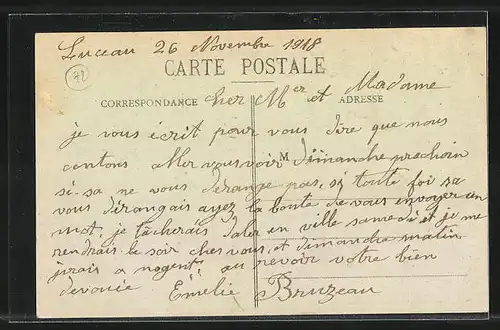 Luceau 26 Novembre 1918
72
CARTE POSTALE
CORRESPONDANCE cher Mer et Madame ADRESSE
je vous écrit pour vous dire que nous
contons aller vous voir M dimanche prochain
si sa ne vous dérange pas, si toute foi sa
vous dérangais ayez la bonté de vous envoyer un
mot, je tâcherais daler en ville samedi et je me
rendrais le soir ches vous, et dimanche matin
jrais a nogent au revoir votre bien
devouée Emelie Bruzeau